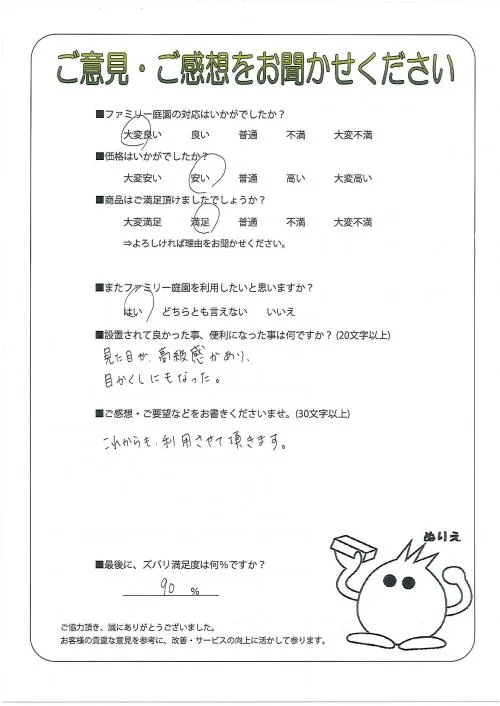 ご意見・ご感想をお聞かせください
■ファミリー庭園の対応はいかがでしたか？
大変良い 良い 普通 不満 大変不満
■価格はいかがでしたか？
大変安い 安い 普通 高い 大変高い
■商品はご満足頂けましたでしょうか？
大変満足 満足 普通 不満 大変不満
⇒よろしければ理由をお聞かせください。
■またファミリー庭園を利用したいと思いますか？
はい どちらとも言えない いいえ
■設置されて良かった事、便利になった事は何ですか？(20文字以上)
見た目が、高級感があり、
目かくしにもなった。
■ご感想・ご要望などをお書きくださいませ。(30文字以上)
これからも、利用させて頂きます。
ぬりえ
■最後に、ズバリ満足度は何％ですか？
90 ％
ご協力頂き、誠にありがとうございました。
お客様の貴重な意見を参考に、改善・サービスの向上に活かして参ります。